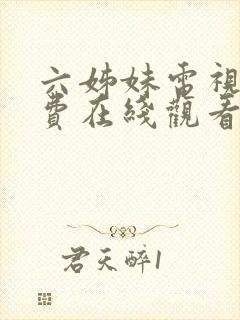 六姊妹電視
費在綫觀看
君天醉1